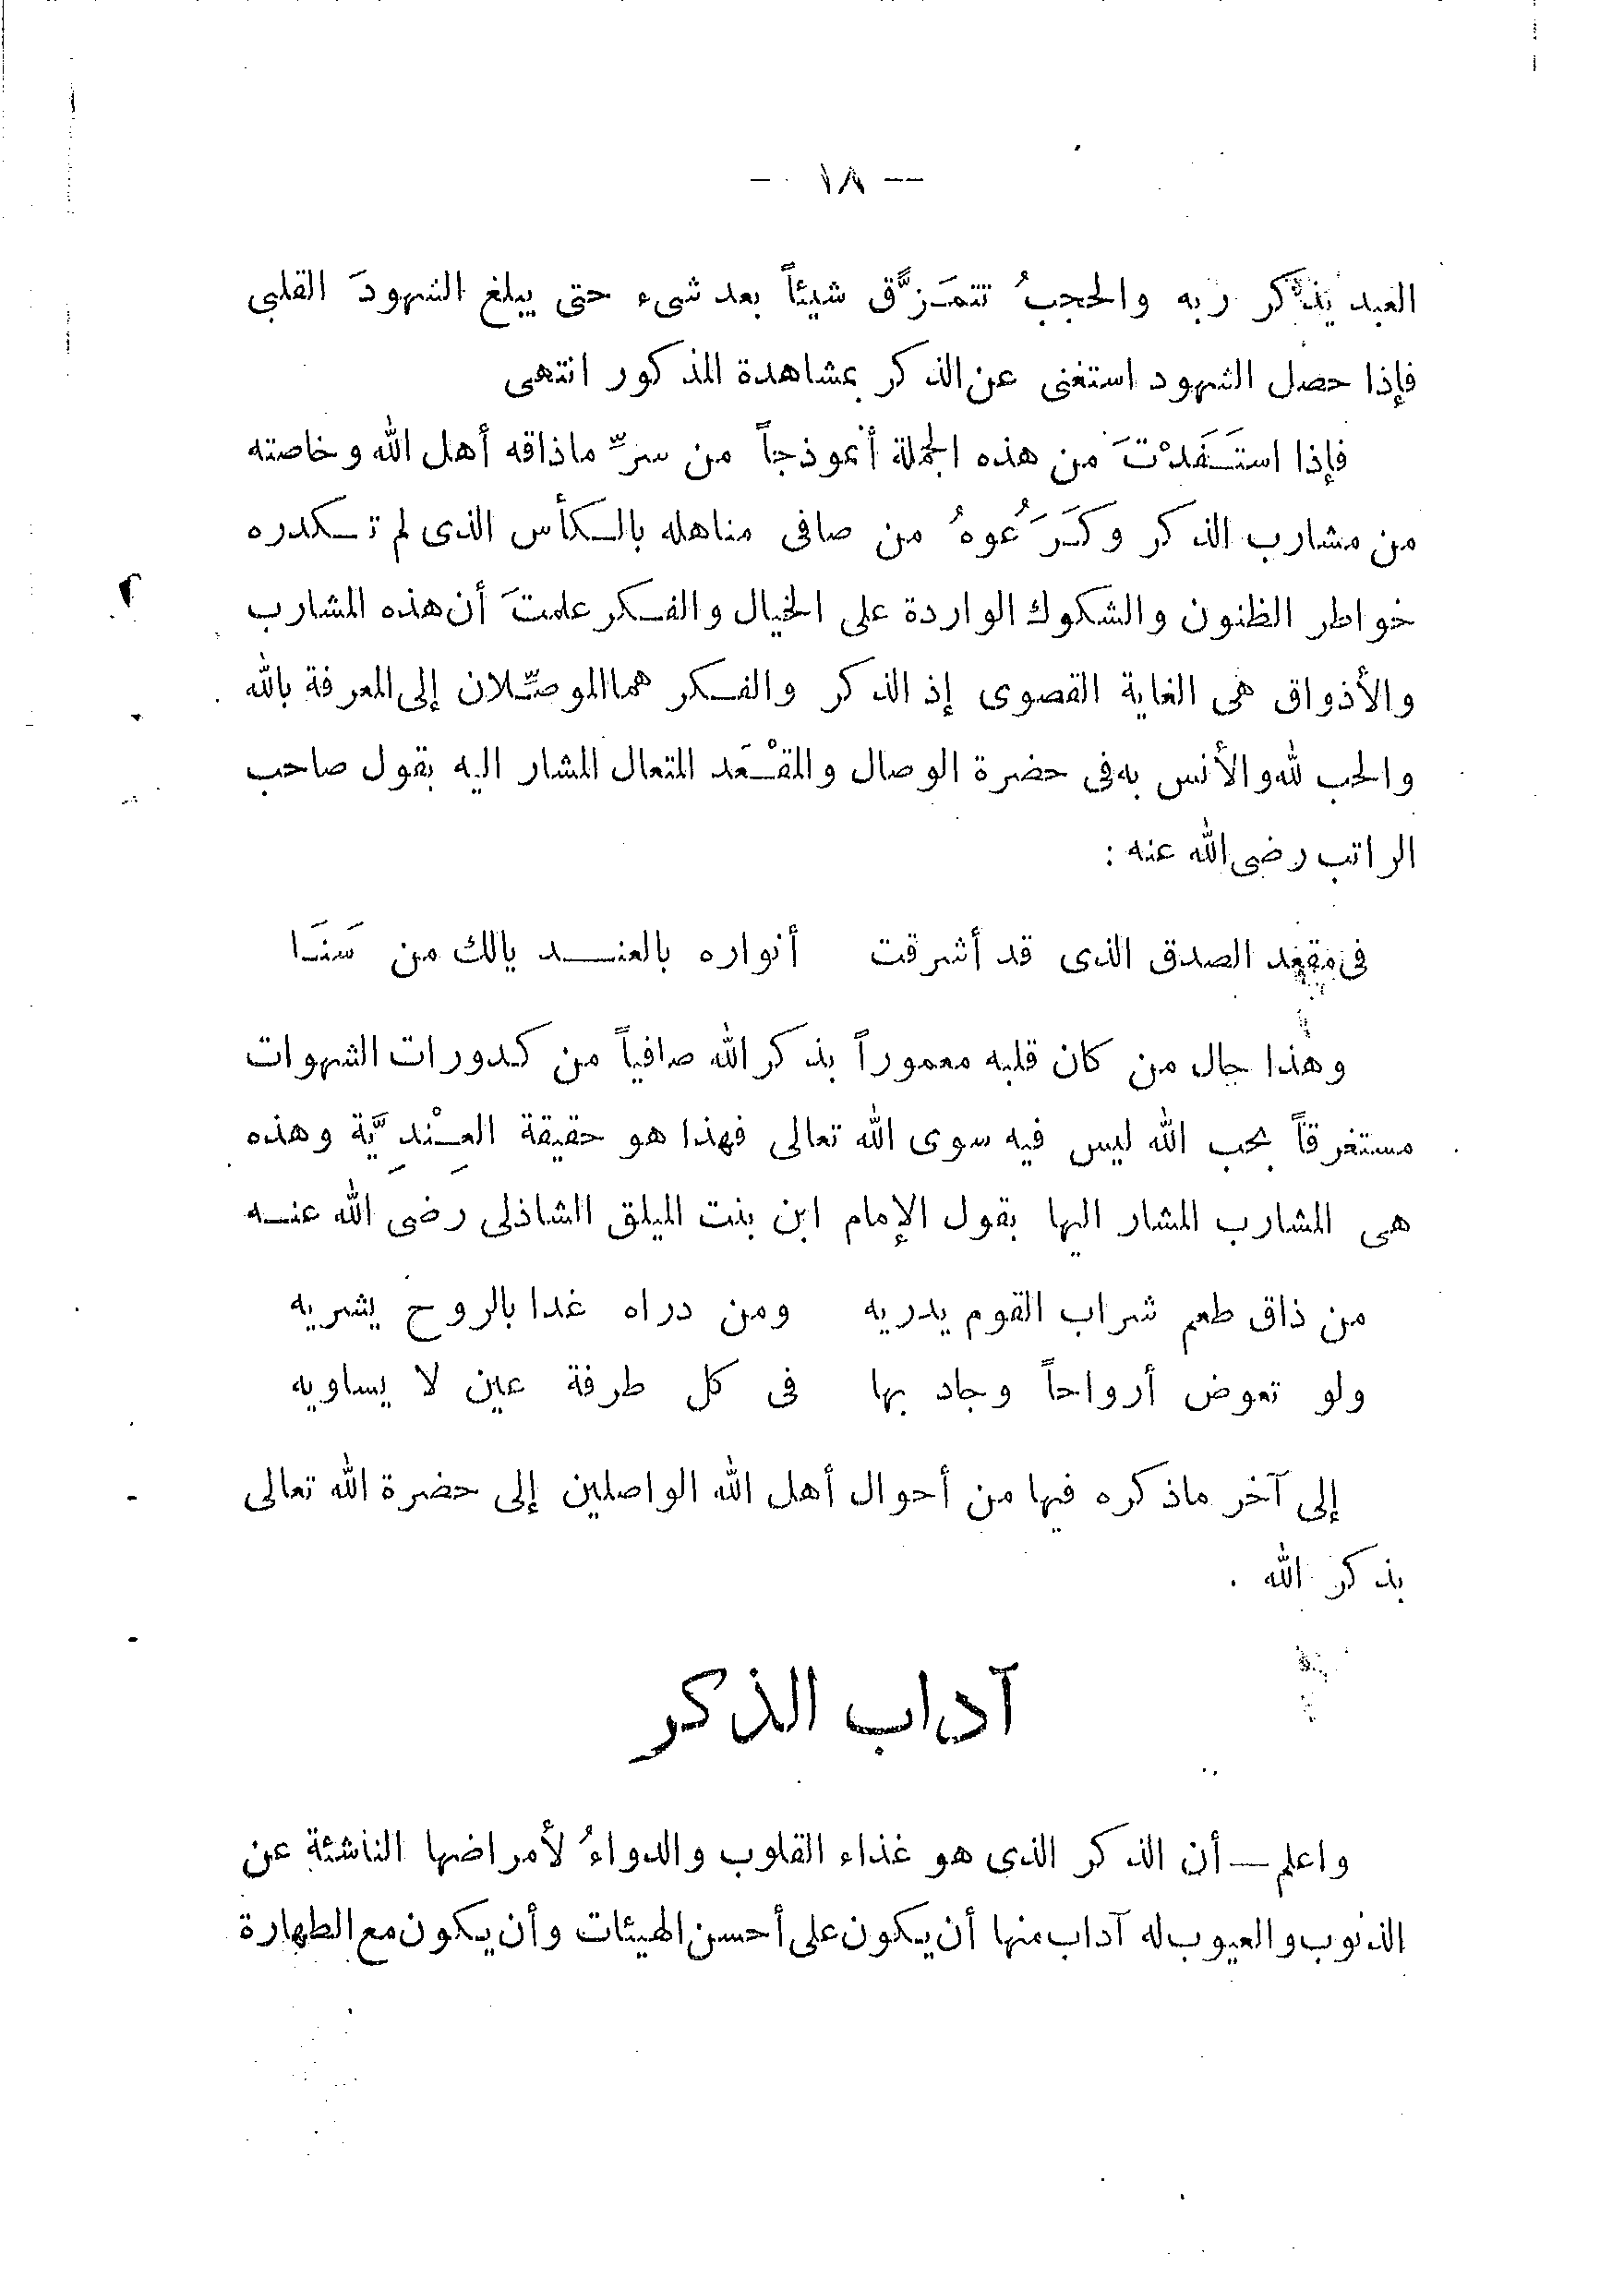 — ١٨ —
العبد يذكر ربه والحجبُ تتمَزَّق شيئاً بعد شىء حتى يبلغ الشهودَ القلبى
فإذا حصل الشهود استغنى عن الذكر بمشاهدة المذكور انتهى
فإذا استَفَدْتَ من هذه الجملة أنموذجاً من سرِّ ماذاقه أهل الله وخاصته
من مشارب الذكر وكَرَعُوهُ من صافى مناهله بالكأس الذى لم تكدره
خواطر الظنون والشكوك الواردة على الخيال والفكر علمتَ أن هذه المشارب
والأذواق هى الغاية القصوى إذ الذكر والفكر هما الموصِّلان إلى المعرفة بالله
والحب لله والأنس به فى حضرة الوصال والمقْعَد المتعال المشار اليه بقول صاحب
الراتب رضى الله عنه :
فى مقعد الصدق الذى قد أشرقت أنواره بالعنــد يالك من سَنَـا
وهذا حال من كان قلبه معموراً بذكر الله صافياً من كدورات الشهوات
مستغرقاً بحب الله ليس فيه سوى الله تعالى فهذا هو حقيقة العِنْدِيَّة وهذه
هى المشارب المشار اليها بقول الإمام ابن بنت الميلق الشاذلى رضى الله عنه
من ذاق طعم شراب القوم يدريه ومن دراه غدا بالروح يشريه
ولو تعوض أرواحاً وجاد بها فى كل طرفة عين لا يساويه
إلى آخر ماذكره فيها من أحوال أهل الله الواصلين إلى حضرة الله تعالى
بذكر الله .
آداب الذكر
واعلم — أن الذكر الذى هو غذاء القلوب والدواءُ لأمراضها الناشئة عن
الذنوب والعيوب له آداب منها أن يكون على أحسن الهيئات وأن يكون مع الطهارة